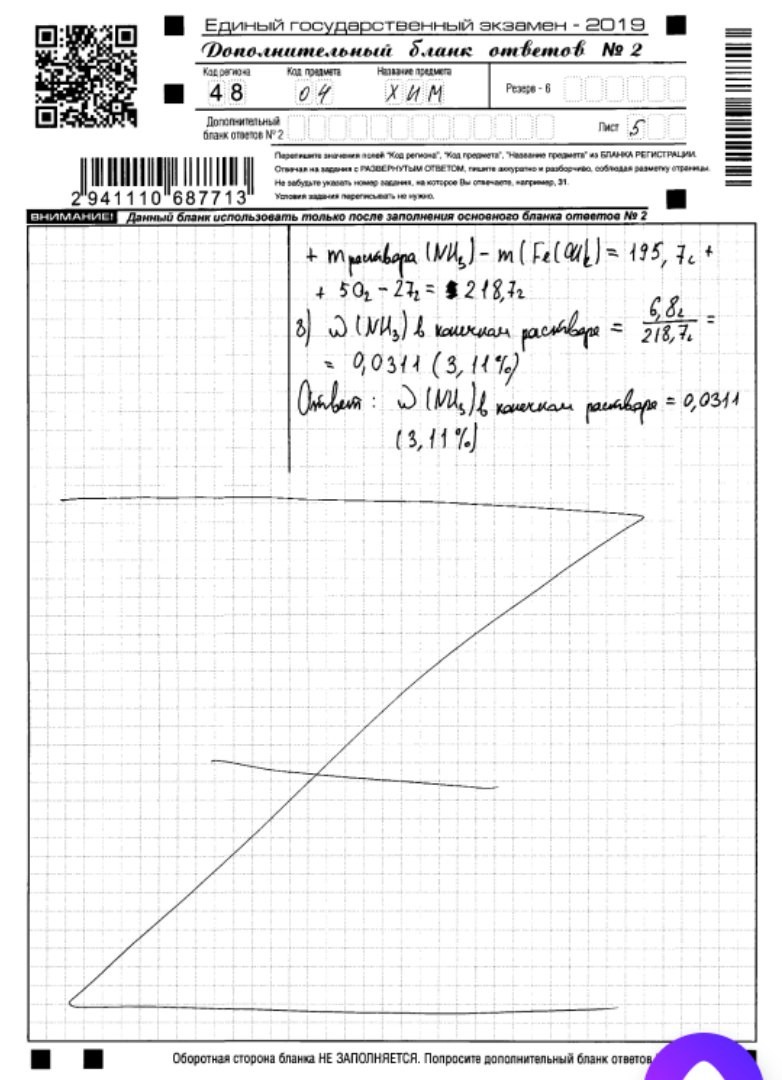 Единый государственный экзамен - 2019
Дополнительный бланк ответов № 2
Код региона Код предмета Название предмета
48 04 ХИМ Резерв - 6
Дополнительный
бланк ответов № 2 Лист 5
Перепишите значения полей "Код региона", "Код предмета", "Название предмета" из БЛАНКА РЕГИСТРАЦИИ.
Отвечая на задания с РАЗВЕРНУТЫМ ОТВЕТОМ, пишите аккуратно и разборчиво, соблюдая разметку страницы.
Не забудьте указать номер задания, на которое Вы отвечаете, например, 31.
Условия задания переписывать не нужно.
2 941110 687713
ВНИМАНИЕ! Данный бланк использовать только после заполнения основного бланка ответов № 2
+ m раствора (NH₃) - m (Fe(OH)₂) = 195,7г +
+ 50г - 27г = 218,7г
8) ω (NH₃) в конечном растворе = 6,8г/218,7г =
= 0,0311 (3,11%)
Ответ: ω (NH₃) в конечном растворе = 0,0311
(3,11%)
Оборотная сторона бланка НЕ ЗАПОЛНЯЕТСЯ. Попросите дополнительный бланк ответов